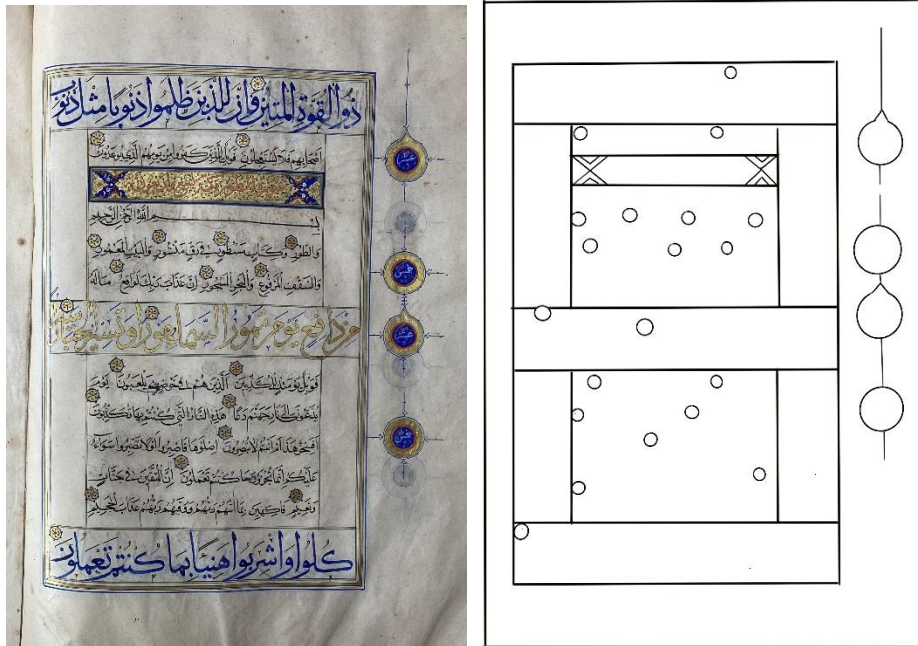 ذو القوة المتين فان للذين ظلموا ذنوبا مثل ذنوب
اصحابهم فلا يستعجلون فويل للذين كفروا من يومهم الذي يوعدون
بسم الله الرحمن الرحيم
والطور وكتاب مسطور في رق منشور والبيت المعمور
والسقف المرفوع والبحر المسجور ان عذاب ربك لواقع ماله
من دافع يوم تمور السماء مورا وتسير الجبال سيرا
فويل يومئذ للمكذبين الذين هم في خوض يلعبون يوم
يدعون الى نار جهنم دعا هذه النار التي كنتم بها تكذبون
افسحر هذا ام انتم لا تبصرون اصلوها فاصبروا او لا تصبروا سواء
عليكم انما تجزون ما كنتم تعملون ان المتقين في جنات
ونعيم فاكهين بما اتيهم ربهم ووقيهم ربهم عذاب الجحيم
كلوا واشربوا هنيئا بما كنتم تعملون
عشر
خمس
عشر
خمس